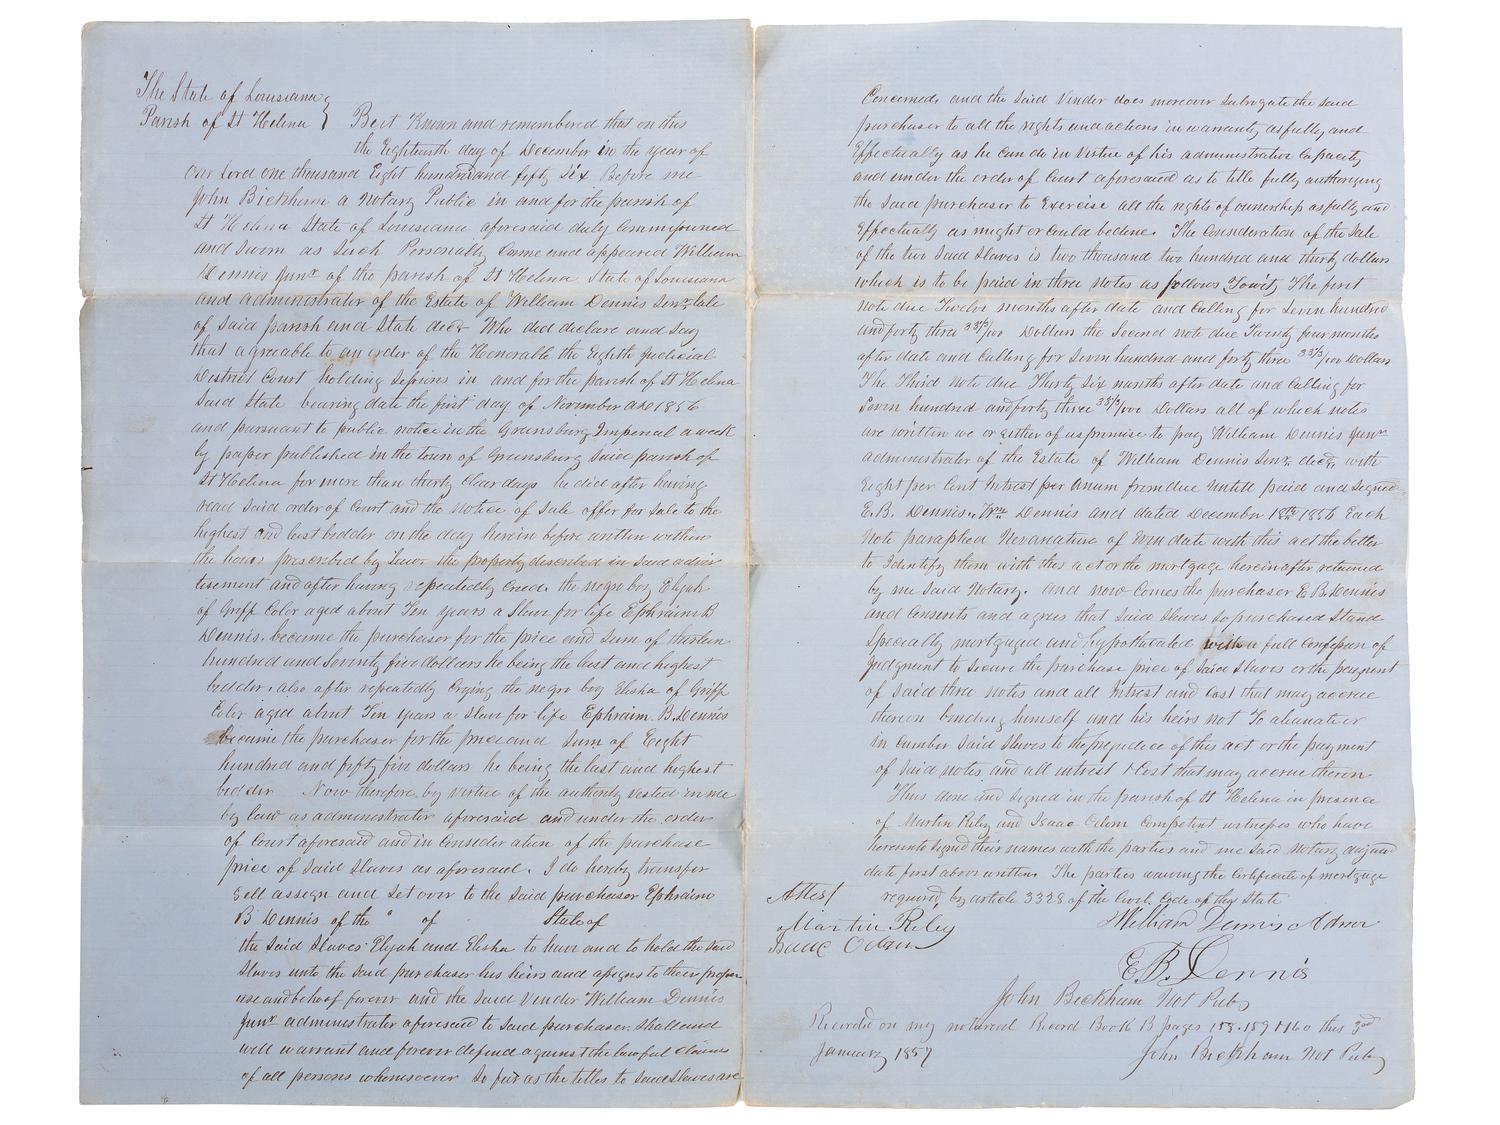 The State of Louisiana
Parish of St Helena } Be it Known and remembered that on this
the Eighteenth day of December in the year of
our lord one thousand Eight hundred and fifty six Before me
John Bickham a Notary Public in and for the parish of
St Helena State of Louisiana aforesaid duly Commissioned
and Sworn as Such Personally Came and appeared William
Dennis Junr of the parish of St Helena State of Louisiana
and administrator of the Estate of William Dennis Senr late
of Said parish and State decd Who did declare and Say
that agreeable to an order of the Honorable the Eighth Judicial
District Court holding Sessions in and for the parish of St Helena
Said State bearing date the first day of November AD 1856
and pursuant to public notice in the Greensburg Imperial a week
ly paper published in the town of Greensburg Said parish of
St Helena for more than thirty Clear days he did after having
read Said order of Court and the Notice of Sale offer for Sale to the
highest and last bidder on the day herein before written within
the hours prescribed by Law the property described in Said adver
tisement and after having repeatedly Cried the negro boy Elijah
of Griff Color aged about Ten years a Slave for life Ephraim B
Dennis became the purchaser for the price and Sum of thirteen
hundred and Seventy five dollars he being the last and highest
bidder, also after repeatedly Crying the negro boy Elisha of Griff
Color aged about Ten years a Slave for life Ephraim B. Dennis
became the purchaser for the price and Sum of Eight
hundred and fifty five dollars he being the last and highest
bidder Now therefore by virtue of the authority vested in me
by law as administrator aforesaid and under the order
of Court aforesaid and in Consideration of the purchase
price of Said Slaves as aforesaid. I do hereby transfer
Sell assign and Set over to the Said purchaser Ephraim
B Dennis of the " of State of
the Said Slaves Elijah and Elisha to have and to hold the Said
Slaves unto the Said purchaser his heirs and assigns to their proper
use and behoof forever and the Said Vendor William Dennis
Junr administrator aforesaid to Said purchaser. Shall and
will warrant and forever defend against the lawful claims
of all persons whomsoever So far as the titles to Said Slaves are
Concerned, and the Said Vender does moreover Subrogate the Said
purchaser to all the rights and actions in warranty as fully and
Effectually as he Can do in Virtue of his administrative Capacity
and under the order of Court aforesaid as to title fully authorizing
the Said purchaser to Exercise all the rights of ownership as fully and
Effectually as might or Could be done. The Consideration of the Sale
of the two Said Slaves is two thousand two hundred and thirty dollars
which is to be paid in three Notes as follows Towit, The first
Note due Twelve months after date and Calling for Seven hundred
and forty three 33 1/3/100 Dollars the Second note due Twenty four months
after date and Calling for Seven hundred and forty three 33 1/3/100 Dollars
The Third Note due Thirty Six months after date and Calling for
Seven hundred and forty three 33 1/3/100 Dollars all of which notes
are written we or either of us promise to pay William Dennis Junr
administrator of the Estate of William Dennis Senr decd, with
Eight per Cent Intrest per Anum from due Untill paid and Signed
E. B. Dennis., Wm Dennis and dated December 18th 1856 Each
Note paraphed Nevarietur of Even date with this act the better
to Identify them with this act or the mortgage herein after retained
by me Said Notary. and now Comes the purchaser E B. Dennis
and Consents and agrees that Said Slaves So purchased Stand
Specially mortgaged and hypothecated with a full Confession of
Judgment to Secure the purchase price of Said Slaves or the payment
of Said three notes and all Intrest and Cost that may accrue
thereon binding himself and his heirs not To alienate or
in Cumber Said Slaves to the prejudice of this act or the payment
of Said notes and all intrest & Cost that may accrue thereon
Thus done and Signed in the parish of St Helena in presence
of Martin Riley and Isaac Odom Competent witnesses who have
hereunto Signed their names with the parties and me Said Notary day and
date first above written The parties waving the Certificate of mortgage
required by article 3328 of the Civil Code of this State
Attest William Dennis Admr
Martin Riley
Isaac Odom
E B. Dennis
John Bickham Not Pub
Recorded on my notorial Record Book B pages 158.159 & 160 this 3rd
January 1857 John Bickham Not Pub